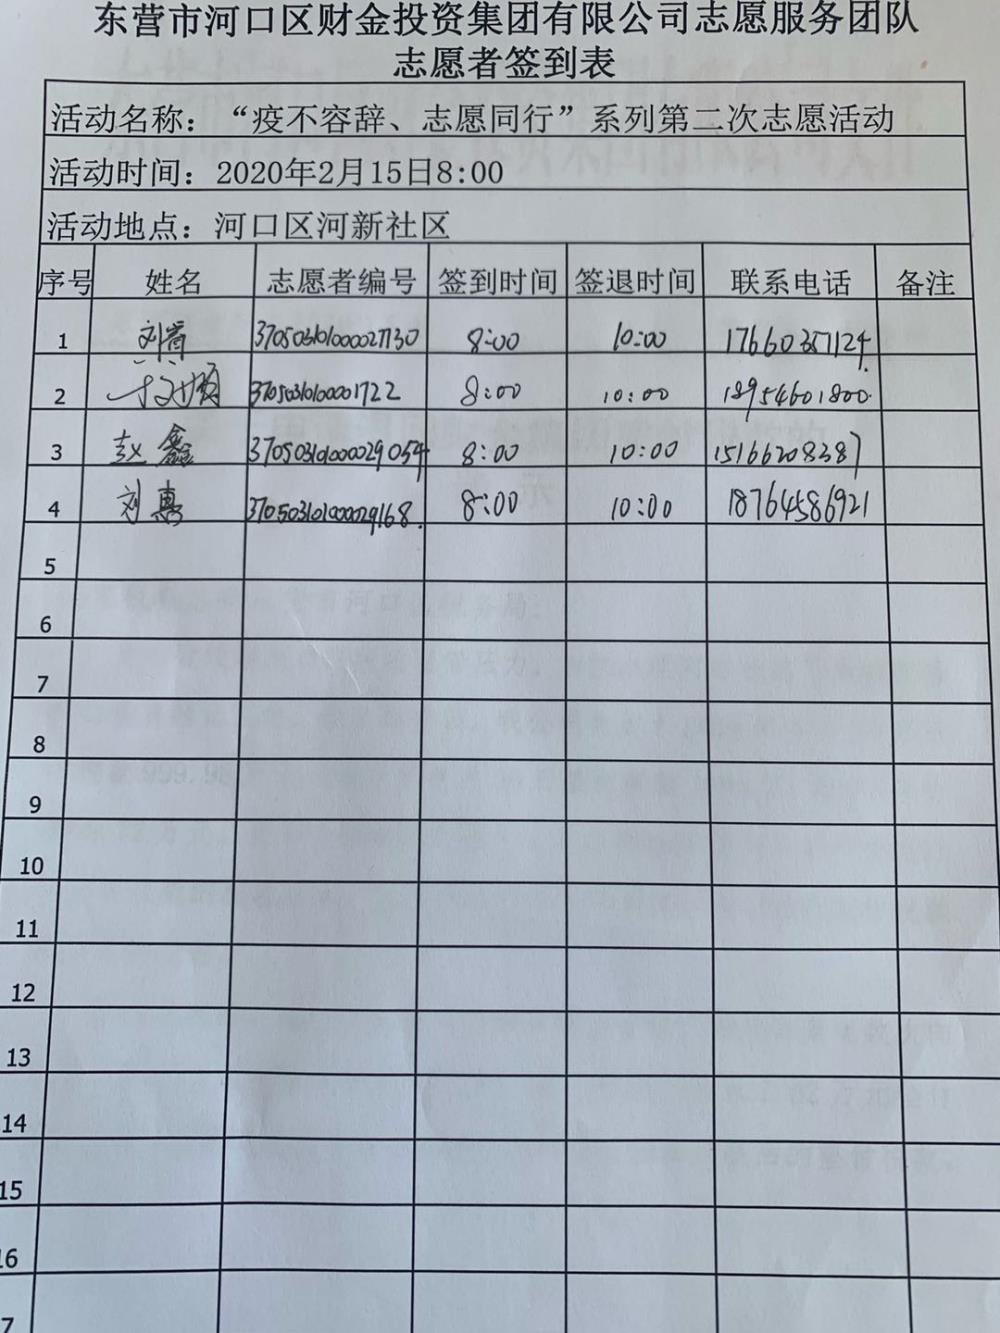 东营市河口区财金投资集团有限公司志愿服务团队
志愿者签到表
活动名称：“疫不容辞、志愿同行”系列第二次志愿活动
活动时间：2020年2月15日8:00
活动地点：河口区河新社区
序号 姓名 志愿者编号 签到时间 签退时间 联系电话 备注
1 8:00 10:00 17660351124
2 8:00 10:00 18954601800
3 赵鑫 8:00 10:00 15166208387
4 刘惠 8:00 10:00 18764586921
5
6
7
8
9
10
11
12
13
14
15